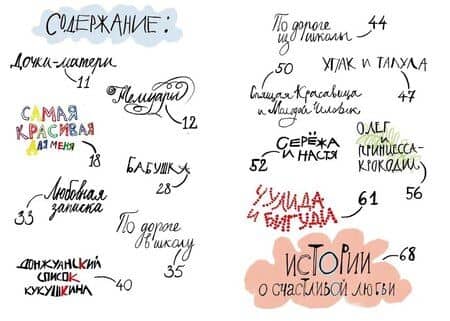 СОДЕРЖАНИЕ:
Дочки-матери
11
Мемуары
12
САМАЯ
КРАСИВАЯ
ДЛЯ МЕНЯ
18
БАБУШКА
28
Любовная
записка
33
По дороге
в школу
35
ДОНЖУАНСКИЙ
СПИСОК
КУКУШКИНА
40
По дороге
из школы
44
УПАК И ТАЛУЛА
47
50
Спящая Красавица
и Малдой Человек
СЕРЁЖА
И НАСТЯ
52
ОЛЕГ
И
ПРИНЦЕССА-
КРОКОДИЛ
56
ЧУЛИДА
И БИГУДИЛ
61
ИСТОРИИ
О СЧАСТЛИВОЙ ЛЮБВИ
68